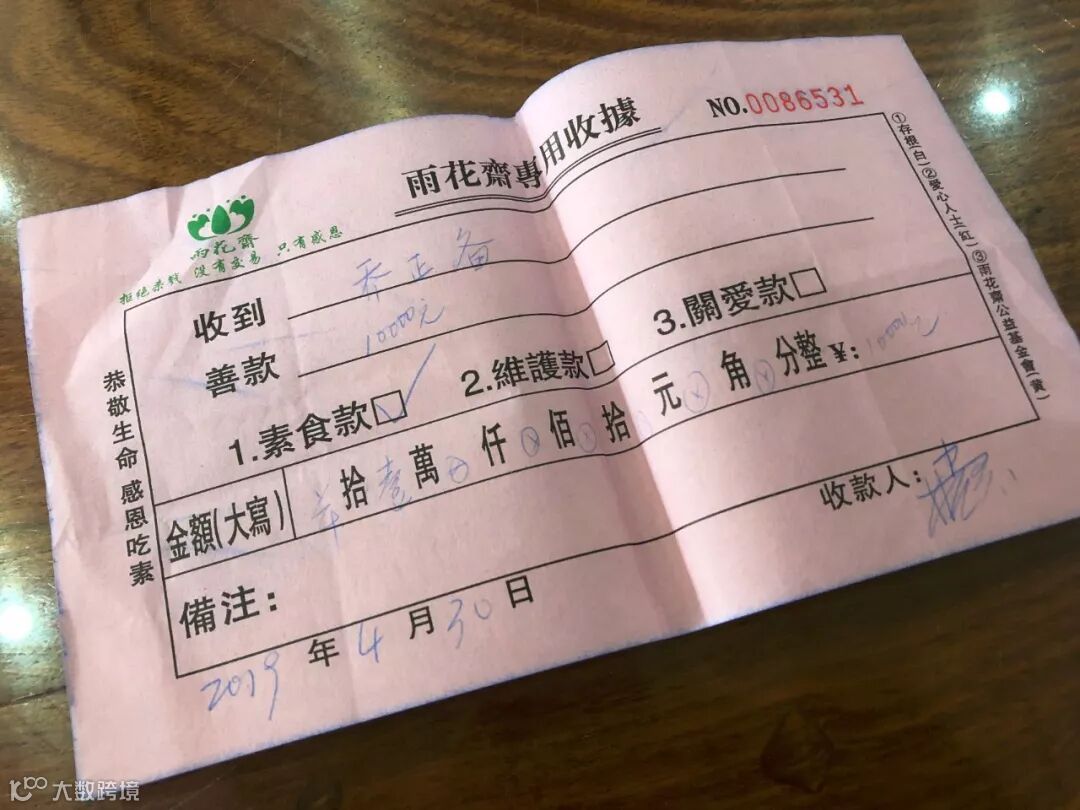 雨花齋專用收據
NO.0086531
雨花齋
拒絕杀戮 没有交易 只有感恩
收到 乔正备
善款 10000元
1.素食款□✓ 2.維護款□ 3.關愛款□
金額(大寫) 拾壹萬⊗仟⊗佰⊗拾 元⊗角⊗分整 ¥:10000元
備注:
收款人:
2019年4月30日
恭敬生命 感恩吃素
①存根(白)②愛心人士(紅)③雨花齋公益基金會(黄)
大数跨境